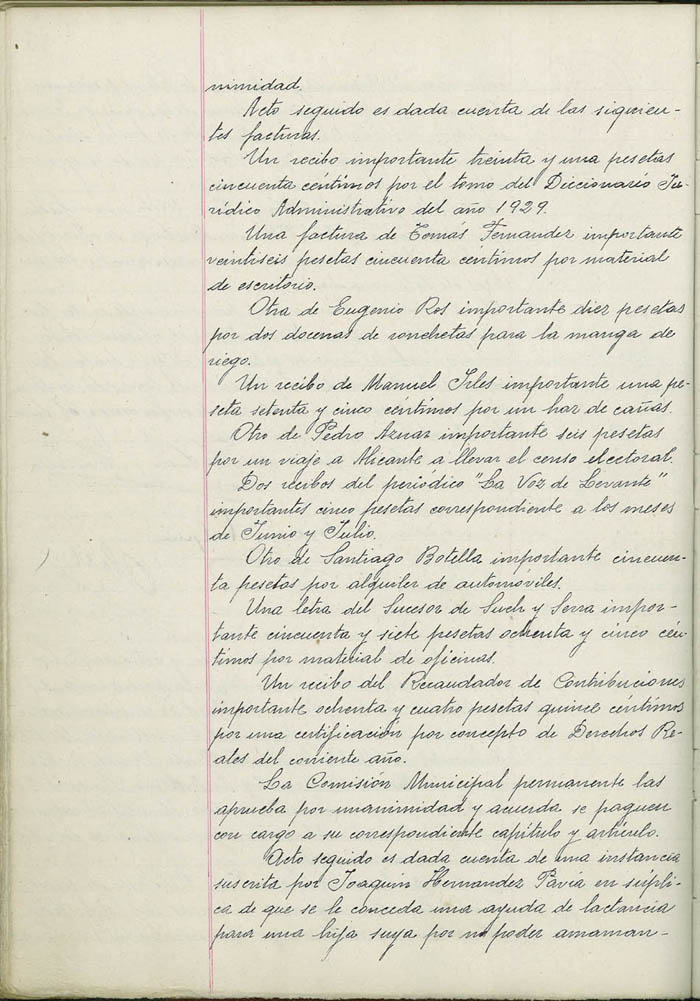 nimidad.
Acto seguido es dada cuenta de las siguien-
tes facturas.
Un recibo importante treinta y una pesetas
cincuenta céntimos por el tomo del Diccionario Ju-
rídico Administrativo del año 1929.
Una factura de Tomás Fernandez importante
veintiseis pesetas cincuenta céntimos por material
de escritorio.
Otra de Eugenio Ros importante diez pesetas
por dos docenas de ronchetas para la manga de
riego.
Un recibo de Manuel Irles importante una pe-
seta setenta y cinco céntimos por un haz de cañas.
Otro de Pedro Aznar importante seis pesetas
por un viaje a Alicante a llevar el censo electoral.
Dos recibos del periódico "La Voz de Levante"
importantes cinco pesetas correspondiente a los meses
de Junio y Julio.
Otro de Santiago Botella importante cincuen-
ta pesetas por alquiler de automóviles.
Una letra del Sucesor de Such y Serra impor-
tante cincuenta y siete pesetas ochenta y cinco cén-
timos por material de oficinas.
Un recibo del Recaudador de Contribuciones
importante ochenta y cuatro pesetas quince céntimos
por una certificación por concepto de Derechos Re-
ales del corriente año.
La Comisión Municipal permanente las
aprueba por unanimidad y acuerda se paguen
con cargo a su correspondiente capítulo y artículo.
Acto seguido es dada cuenta de una instancia
suscrita por Joaquin Hernandez Pavía en súpli-
ca de que se le conceda una ayuda de lactancia
para una hija suya por no poder amaman-